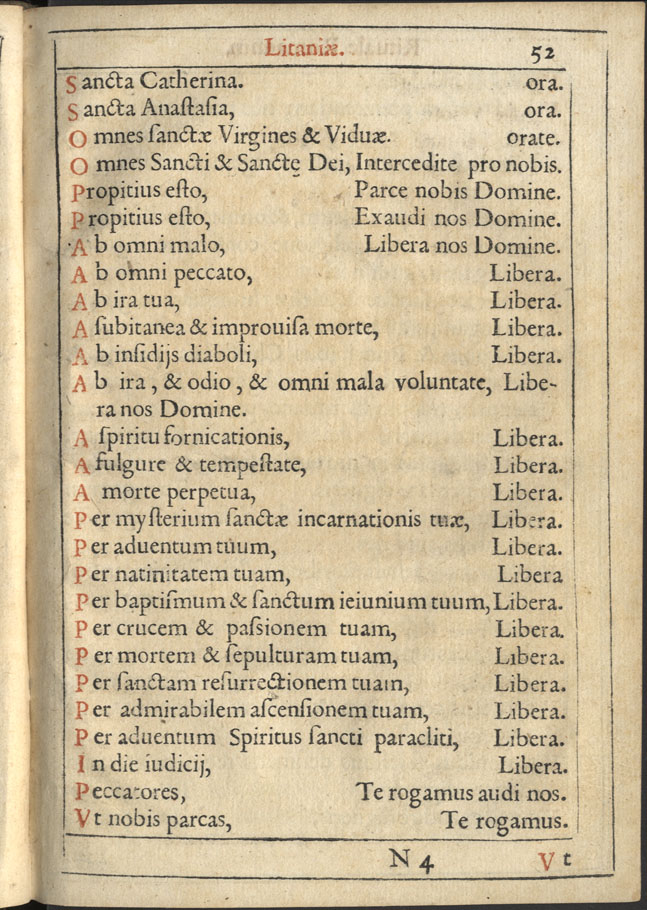 Litaniæ. 52
Sancta Catherina. ora.
Sancta Anaſtaſia, ora.
Omnes ſanctæ Virgines & Viduæ. orate.
Omnes Sancti & Sanctę Dei, Intercedite pro nobis.
Propitius eſto, Parce nobis Domine.
Propitius eſto, Exaudi nos Domine.
Ab omni malo, Libera nos Domine.
Ab omni peccato, Libera.
Ab ira tua, Libera.
A ſubitanea & improuiſa morte, Libera.
Ab inſidijs diaboli, Libera.
Ab ira, & odio, & omni mala voluntate, Libe-
ra nos Domine.
A ſpiritu fornicationis, Libera.
A fulgure & tempeſtate, Libera.
A morte perpetua, Libera.
Per myſterium ſanctæ incarnationis tuæ, Libera.
Per aduentum tuum, Libera.
Per natinitatem tuam, Libera
Per baptiſmum & ſanctum ieiunium tuum, Libera.
Per crucem & paſsionem tuam, Libera.
Per mortem & ſepulturam tuam, Libera.
Per ſanctam reſurrectionem tuam, Libera.
Per admirabilem aſcenſionem tuam, Libera.
Per aduentum Spiritus ſancti paracliti, Libera.
In die iudicij, Libera.
Peccatores, Te rogamus audi nos.
Vt nobis parcas, Te rogamus.
N 4 Vt